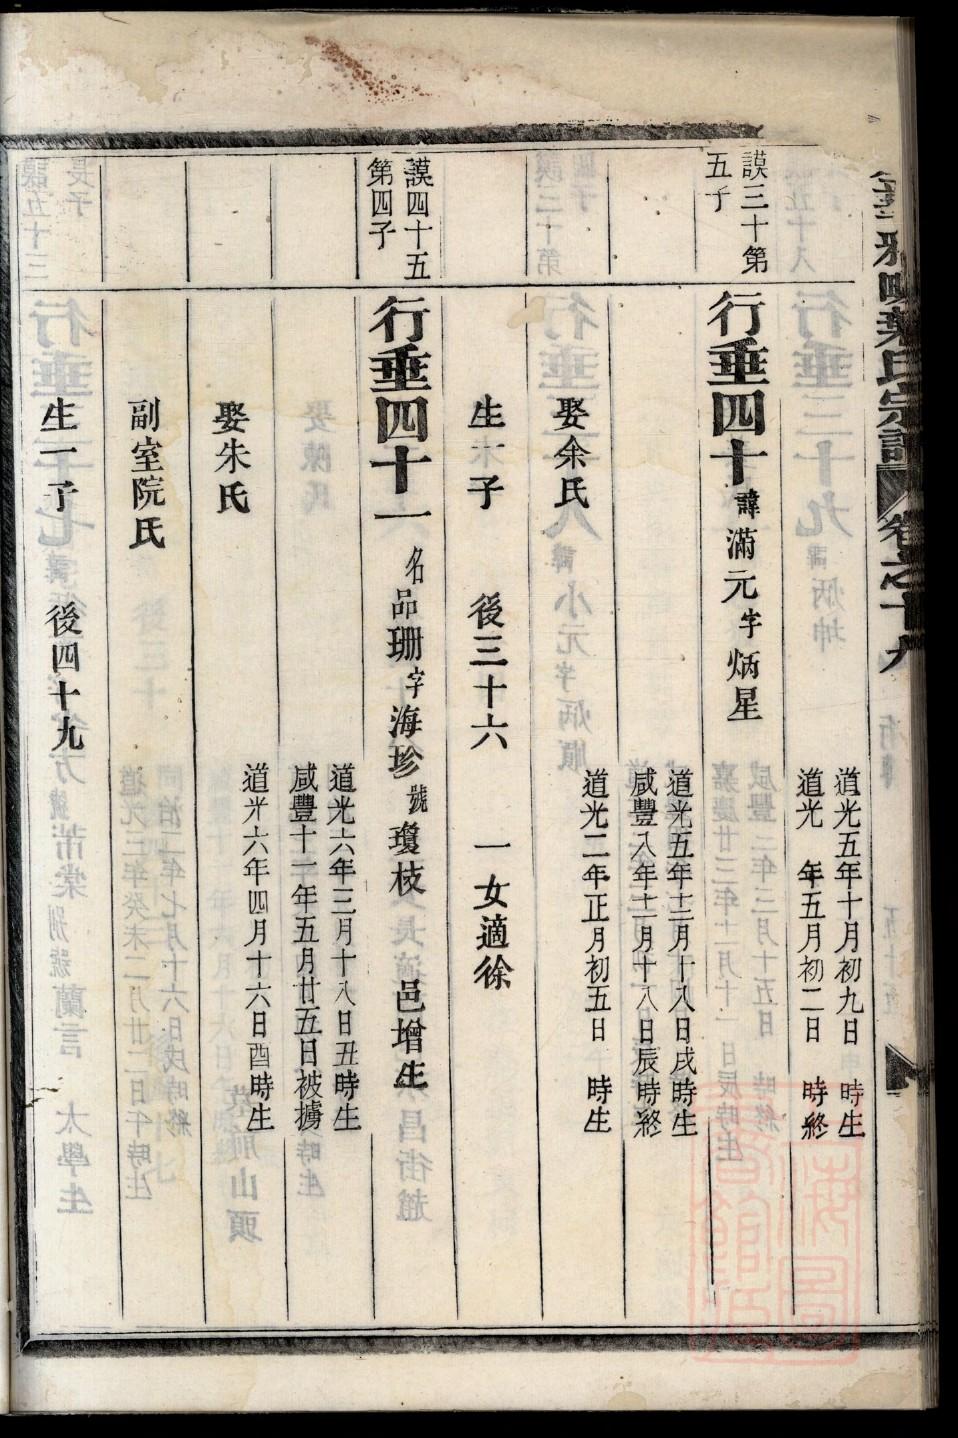 葉氏宗譜 卷之十九
道光五年十月初九日 時生
道光 年五月初二日 時終
謨三十第
五子
行垂四十 諱滿元字炳星
道光五年十二月十八日戌時生
咸豐八年十二月十八日辰時終
娶余氏
道光二年正月初五日 時生
生 子 後三十六 一女適徐
謨四十五
第四子
行垂四十一 名品珊字海珍號瓊枝 邑增生
道光六年三月十八日丑時生
咸豐十一年五月廿五日被擄
娶朱氏
道光六年四月十六日酉時生
副室院氏
生一子 後四十九